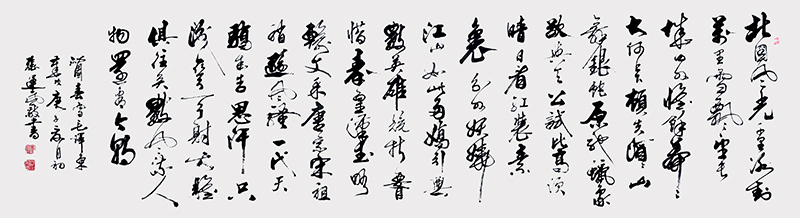 北国风光千里冰封
万里雪飘望长
城内外惟馀莽々
大河上下顿失滔々山
舞银蛇原驰蜡象
欲与天公试比高须
晴日看红装素
裹分外妖娆
江山如此多娇引无
数英雄竞折腰
惜秦皇汉武略
输文采唐宗宋祖
稍逊风骚一代天
骄成吉思汗只
识弯弓射大雕
俱往矣数风流人
物还看今朝
沁园春雪毛泽东
庚子 月初
敬书